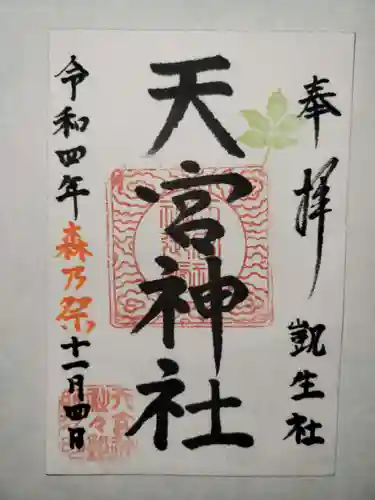 奉拝 凱生社
天宮神社
令和四年 森乃祭 十一月四日